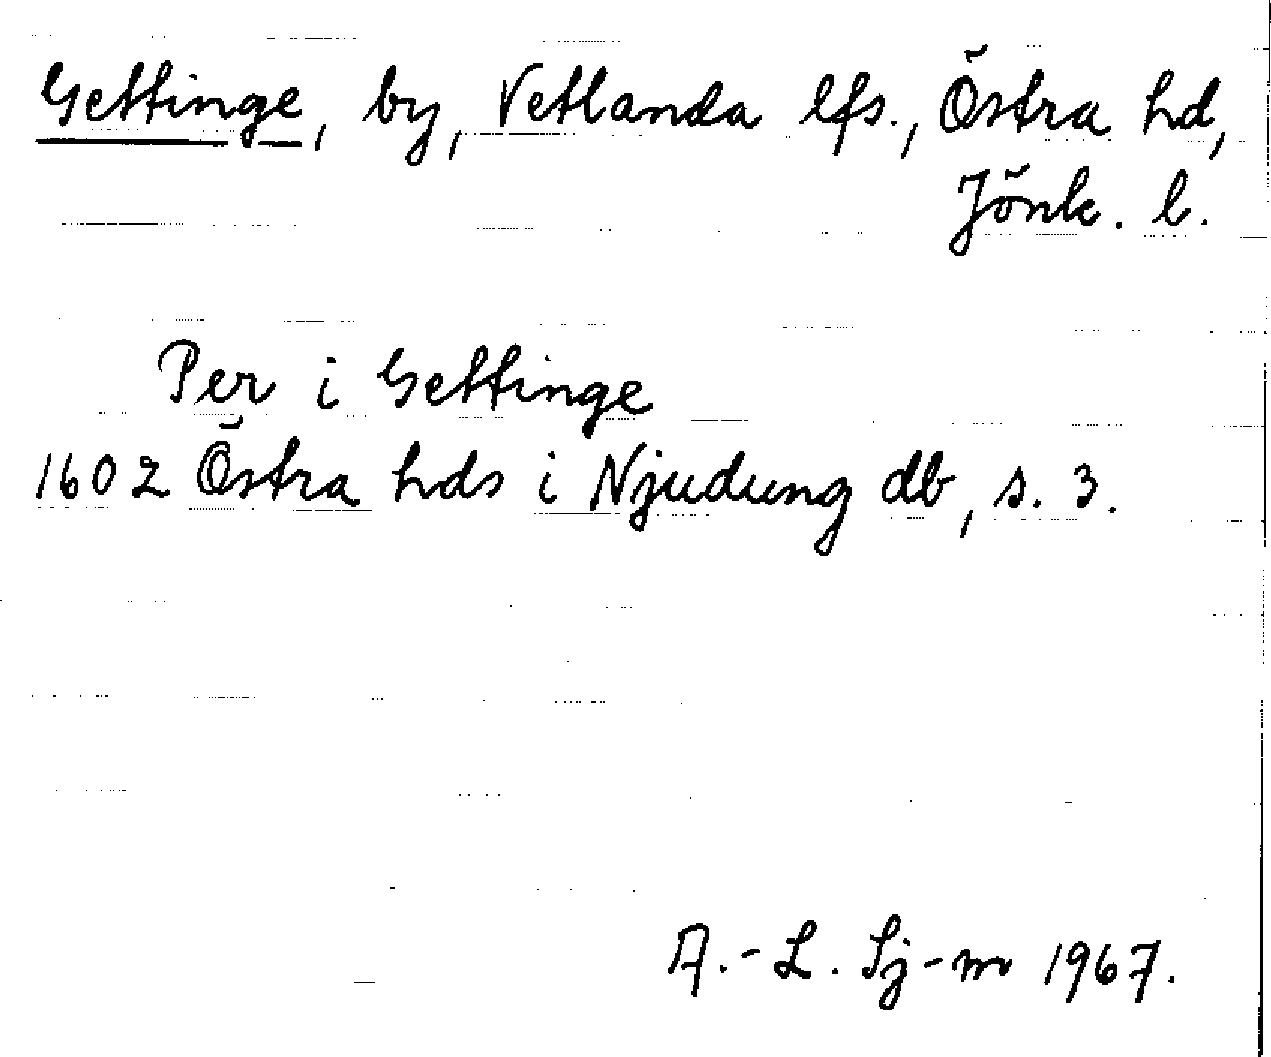 Gettinge, by, Vetlanda lfs., Östra hd,
Jönk. l.
Per i Gettinge
1602 Östra hds i Njudung db, s. 3.
A.-L. Sj-m 1967.